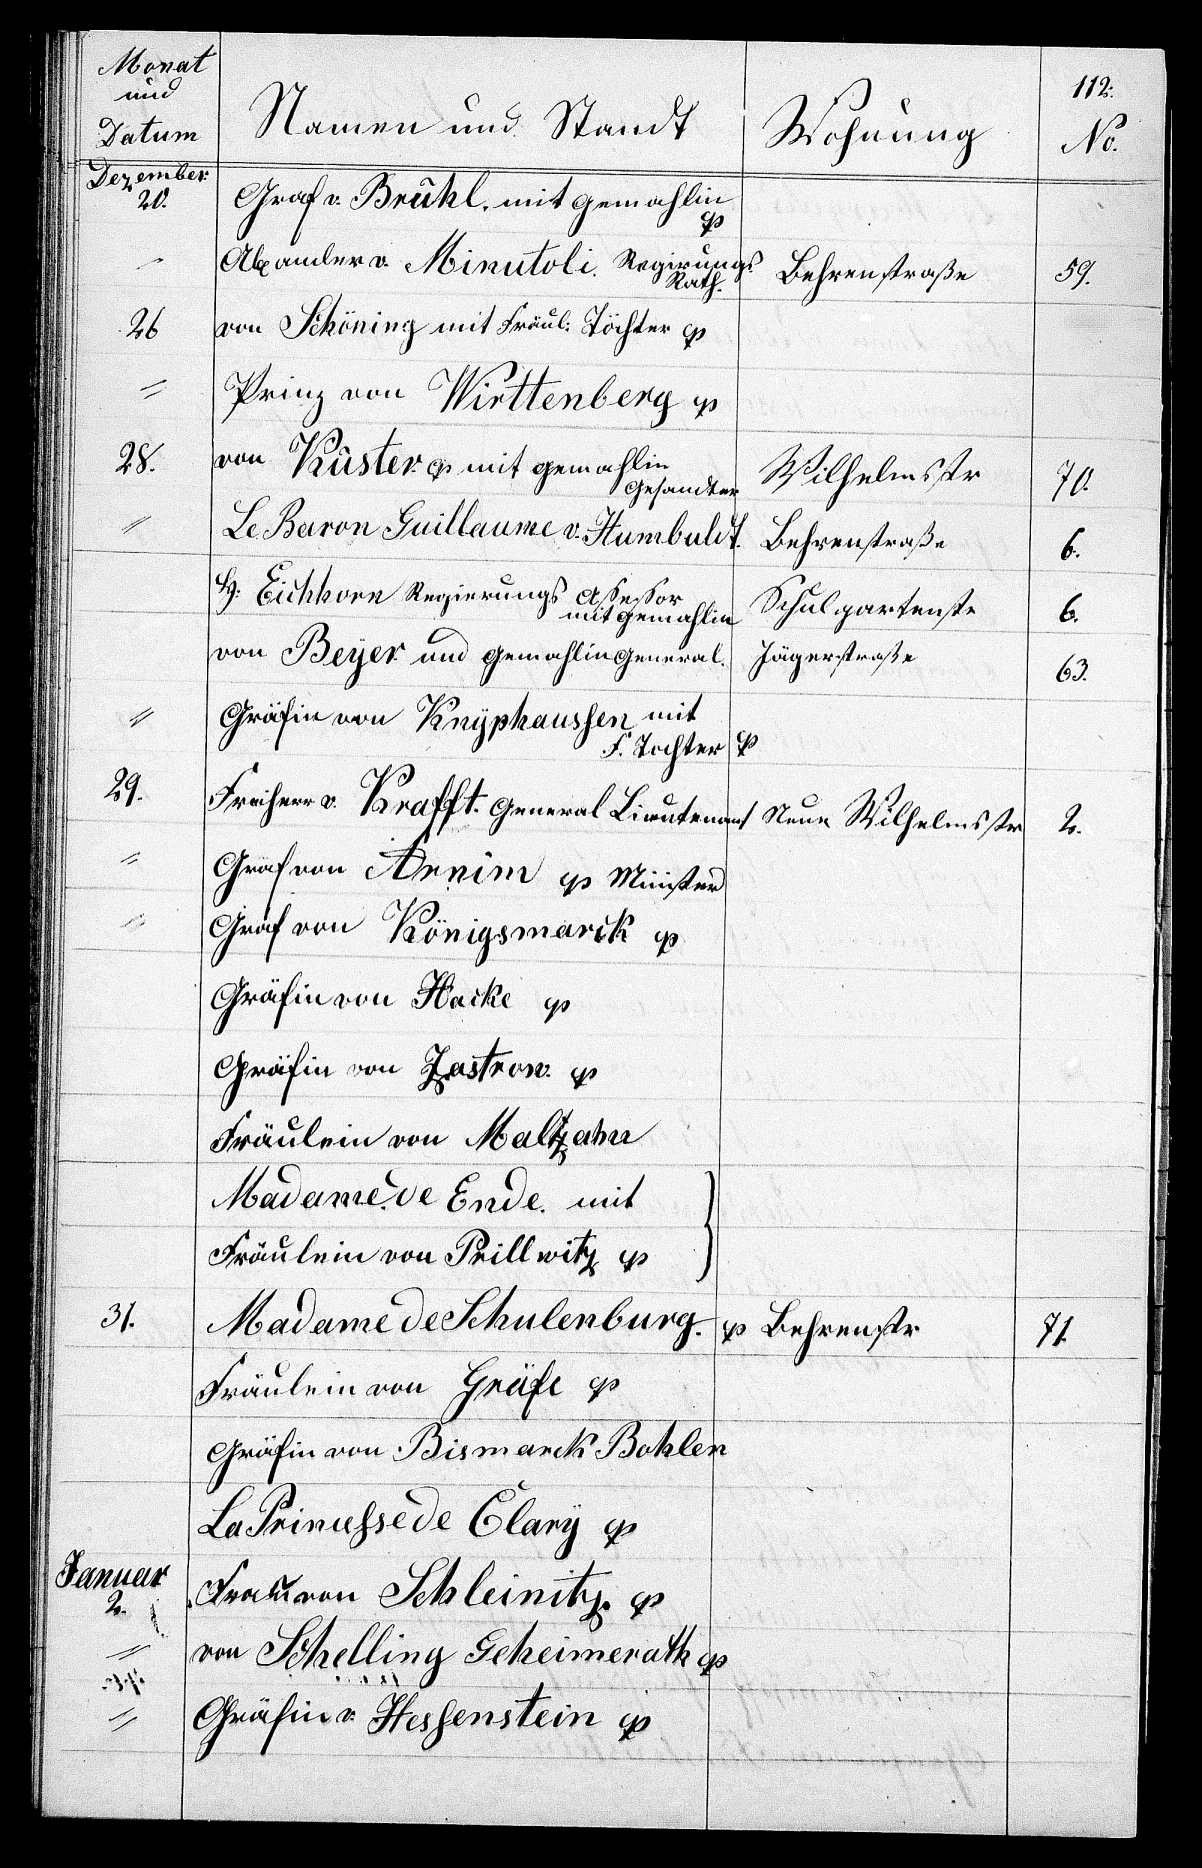 Monat und Datum Namen und Standt Wohnung 112. No.
Dezember
20. Graf v. Brühl. mit gemahlin
Alexander v. Minutoli. Regirungs Rath. Behrenstraße 59.
26 von Schöning mit Fräul: Töchter
" Prinz von Wirttenberg
28. von Küster mit gemahlin Gesandter Wilhelmsstr 70.
" Le Baron Guillaume v. Humbuldt. Behrenstraße 6.
H: Eichhorn Regierungs Assessor mit gemahlin Schulgartenstr 6.
von Beyer und gemahlin General. Jägerstraße 63.
" Gräfin von Knÿphaussen mit F. Tochter
29. Freiherr v. Krafft. General Lieutenant Neue Wilhelmsstr 2.
" Graf von Arnim Minister
" Graf von Königsmarck
Gräfin von Hacke
Gräfin von Zastrow.
Fräulein von Maltzahn
Madame de Ende. mit
Fräulein von Prillwitz
31. Madame de Schulenburg. Behrenstr 71
Fräulein von Gräfe
Gräfin von Bismarck Bohlen
La Princesse de Clarÿ
Januar
2. Frau von Schleinitz.
" von Schelling Geheimerath
" Gräfin v. Hessenstein